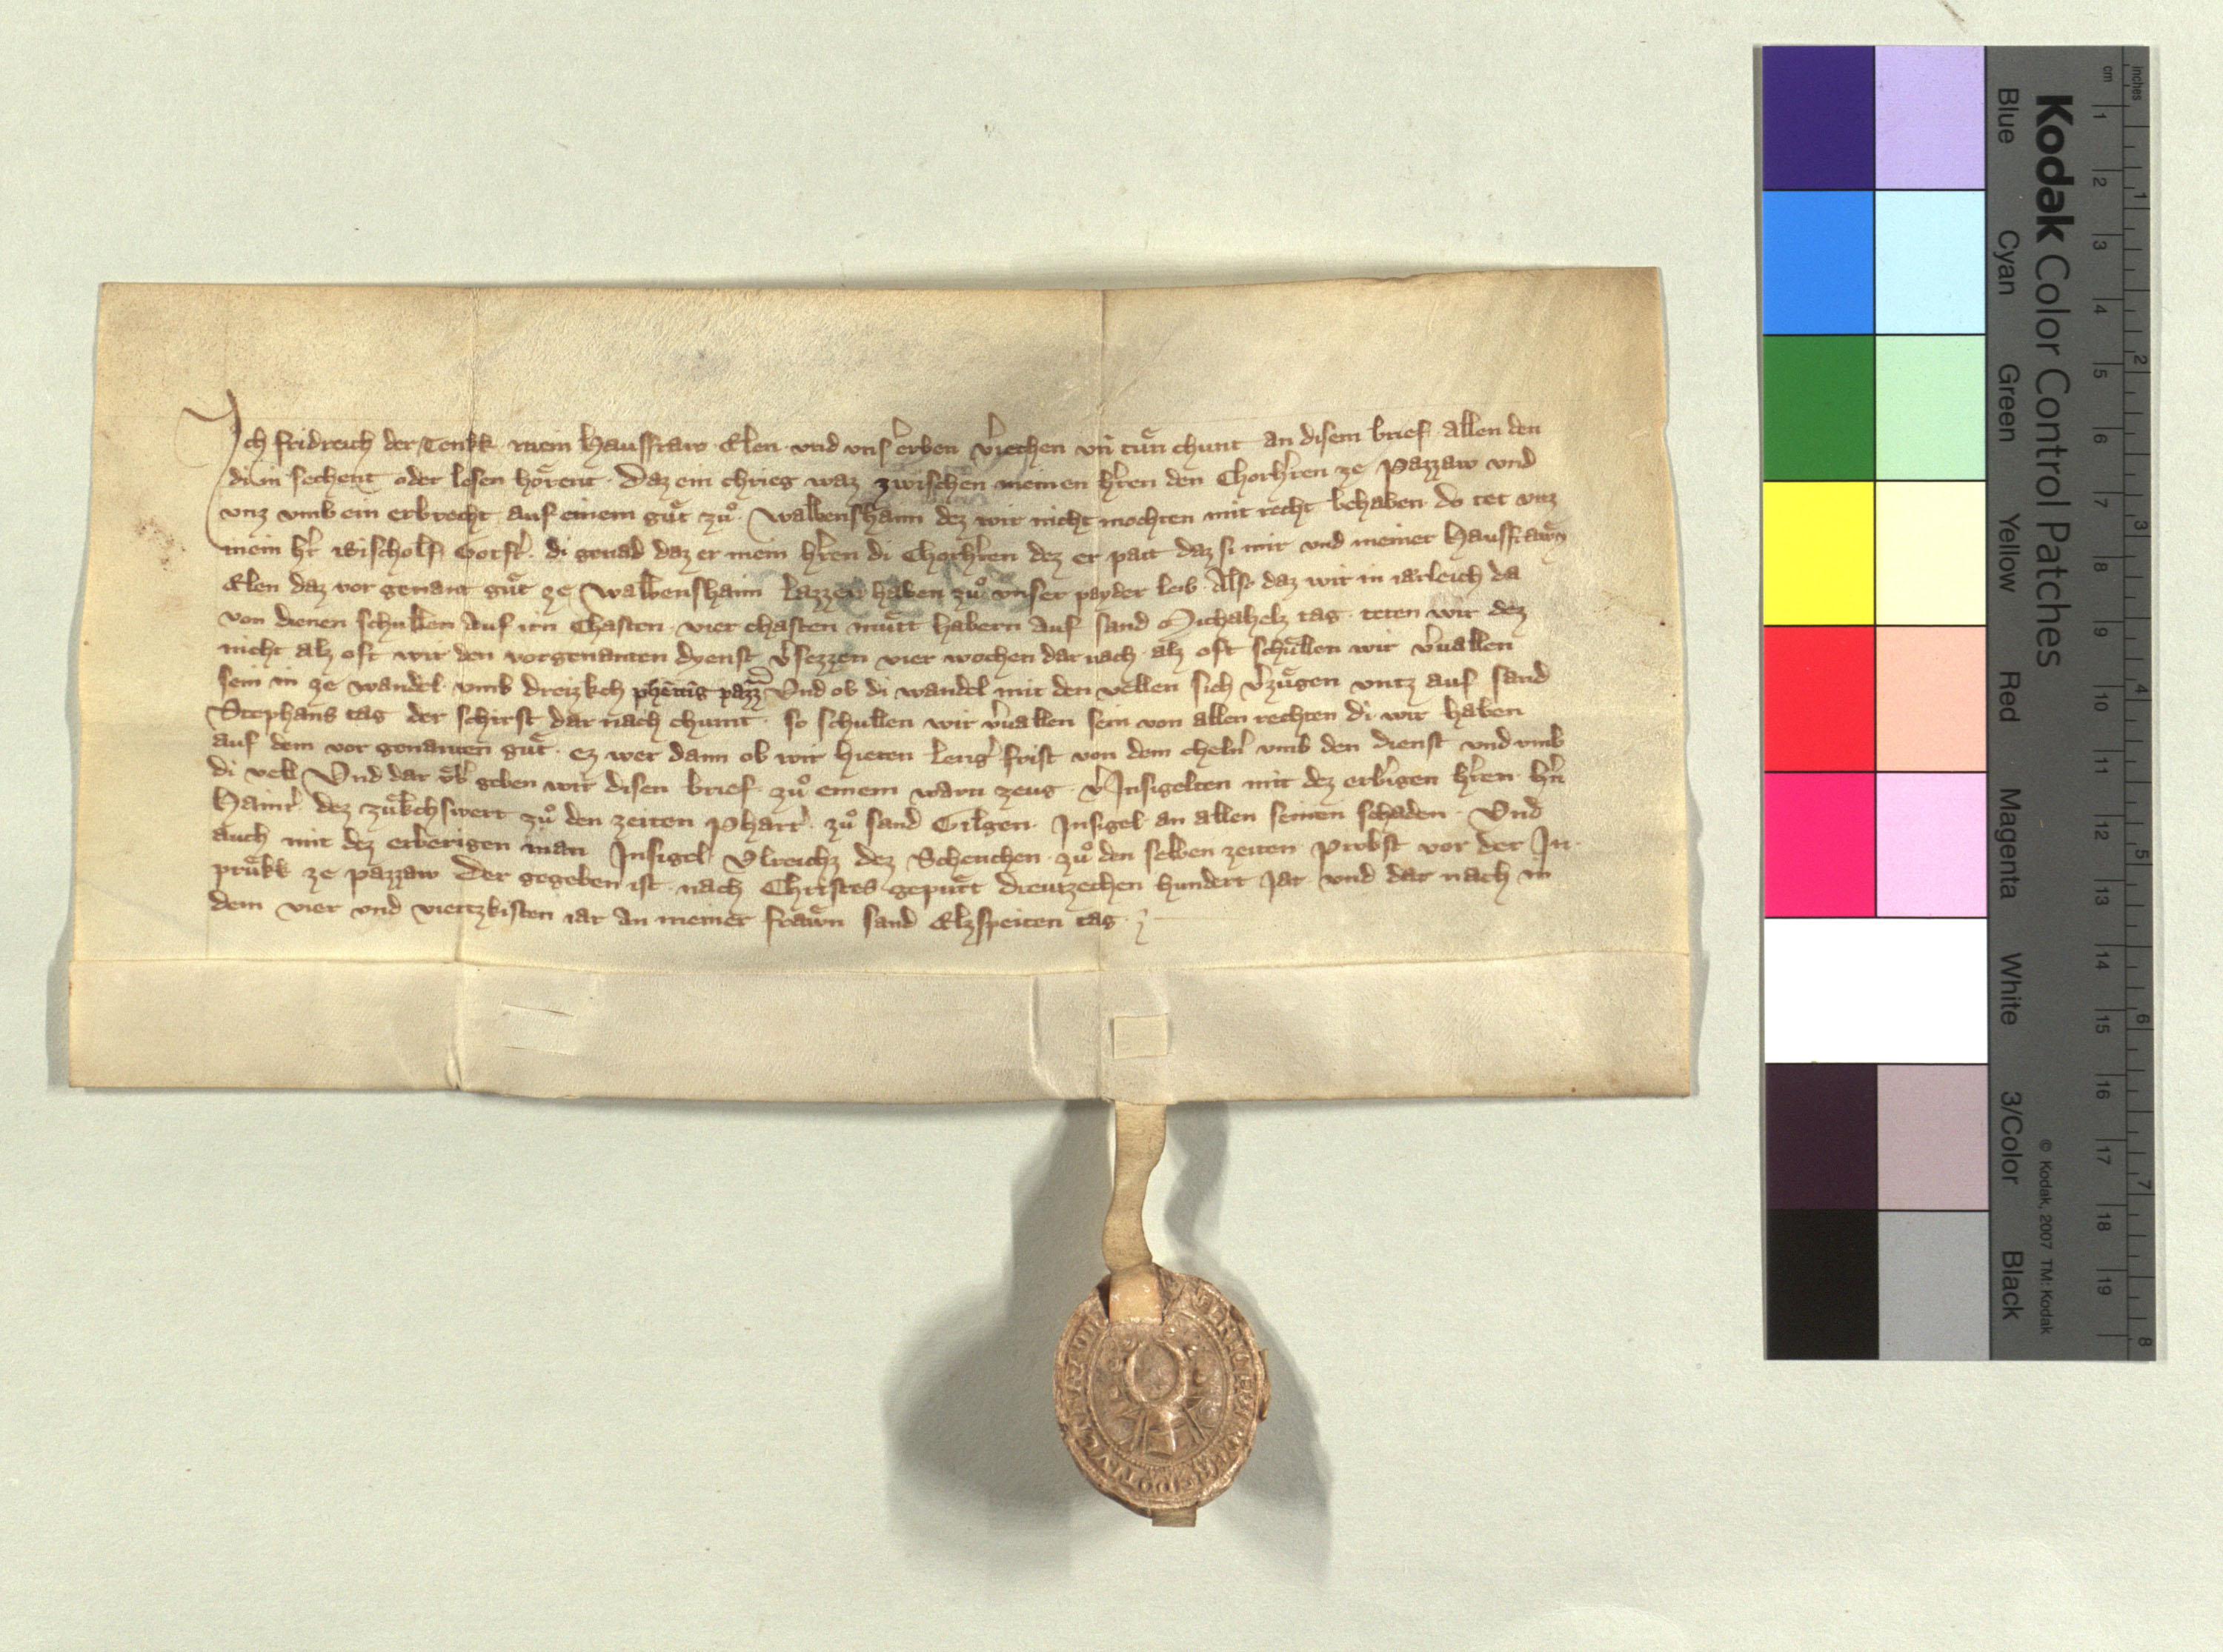 Ich fridreich der Tenkk mein Hausfraw Elen vnd vns erben v̓iechen vn̄ tuͤn chunt an disem brief allen den
di in sechent oder lesen hoͤrent Daz ein chrieg waz zwischen meinen hr̓en den Chorhr̓en ze Pazzaw vnd
vnz vmb ein erbrecht auf einem guͤt zuͦ Walbenshaim dez wir nicht mochten mit recht behaben do tet vnz
mein hr̓ Bischolf Gotfr̓ di genad daz er mein hr̓en di Chorhr̓en dez er patt daz si mir vnd meiner Hausfrawͤn
Elen daz vor genant guͤt ze Walbenshaim lazzen haben zuͦ vnser payder leib Also daz wir in iaͤrleich da
von dienen schullen Auf irn Chasten vier chasten muͤtt habern Auf sand Michahelz tag teten wir dez
nicht alz oft wir den vorgenanten dyenst v̓sezzen vier wochen dar nach alz oft schuͤllen wir v̓uallen
sein in ze wandel vmb dreizkch phenig pazz Vnd ob di wandel mit den vellen sich v̓zuͤgen vntz auf sand
Stephans tag der schirst dar nach chumt so schullen wir v̓uallen sein von allen rechten di wir haben
auf dem vor genanten guͤt ez wer dann ob wir hieten leng̓ frist von dem cheln̓ vmb den dienst vnd vmb
di vell Vnd dar uͤb̓ geben wir disen brief zuͦ einem warn zeug v̓Insigelten mit dez erb̓igen hr̓en hn̓
Hainr̓ dez zuͤkchswert zuͦ den zeiten Pharr̓ zuͦ sand Gilgen Insigel an allen seinen schaden Vnd
auch mit dez erberigen man Insigel Vlreichz dez Schenchen zuͦ den selben zeiten Probst vor der In
pruͤkk ze pazzaw Der gegeben ist nach Christes gepuͤrt Dreutzechen hundert Jar vnd dar nach in
dem vier vnd viertzkisten iar an meiner frawͤn sand Elzspeiten tag
Kodak Color Control Patches
Blue Cyan Green Yellow Red Magenta White 3/Color Black
© Kodak, 2007 TM: Kodak
inches 1 2 3 4 5 6 7 8
cm 1 2 3 4 5 6 7 8 9 10 11 12 13 14 15 16 17 18 19